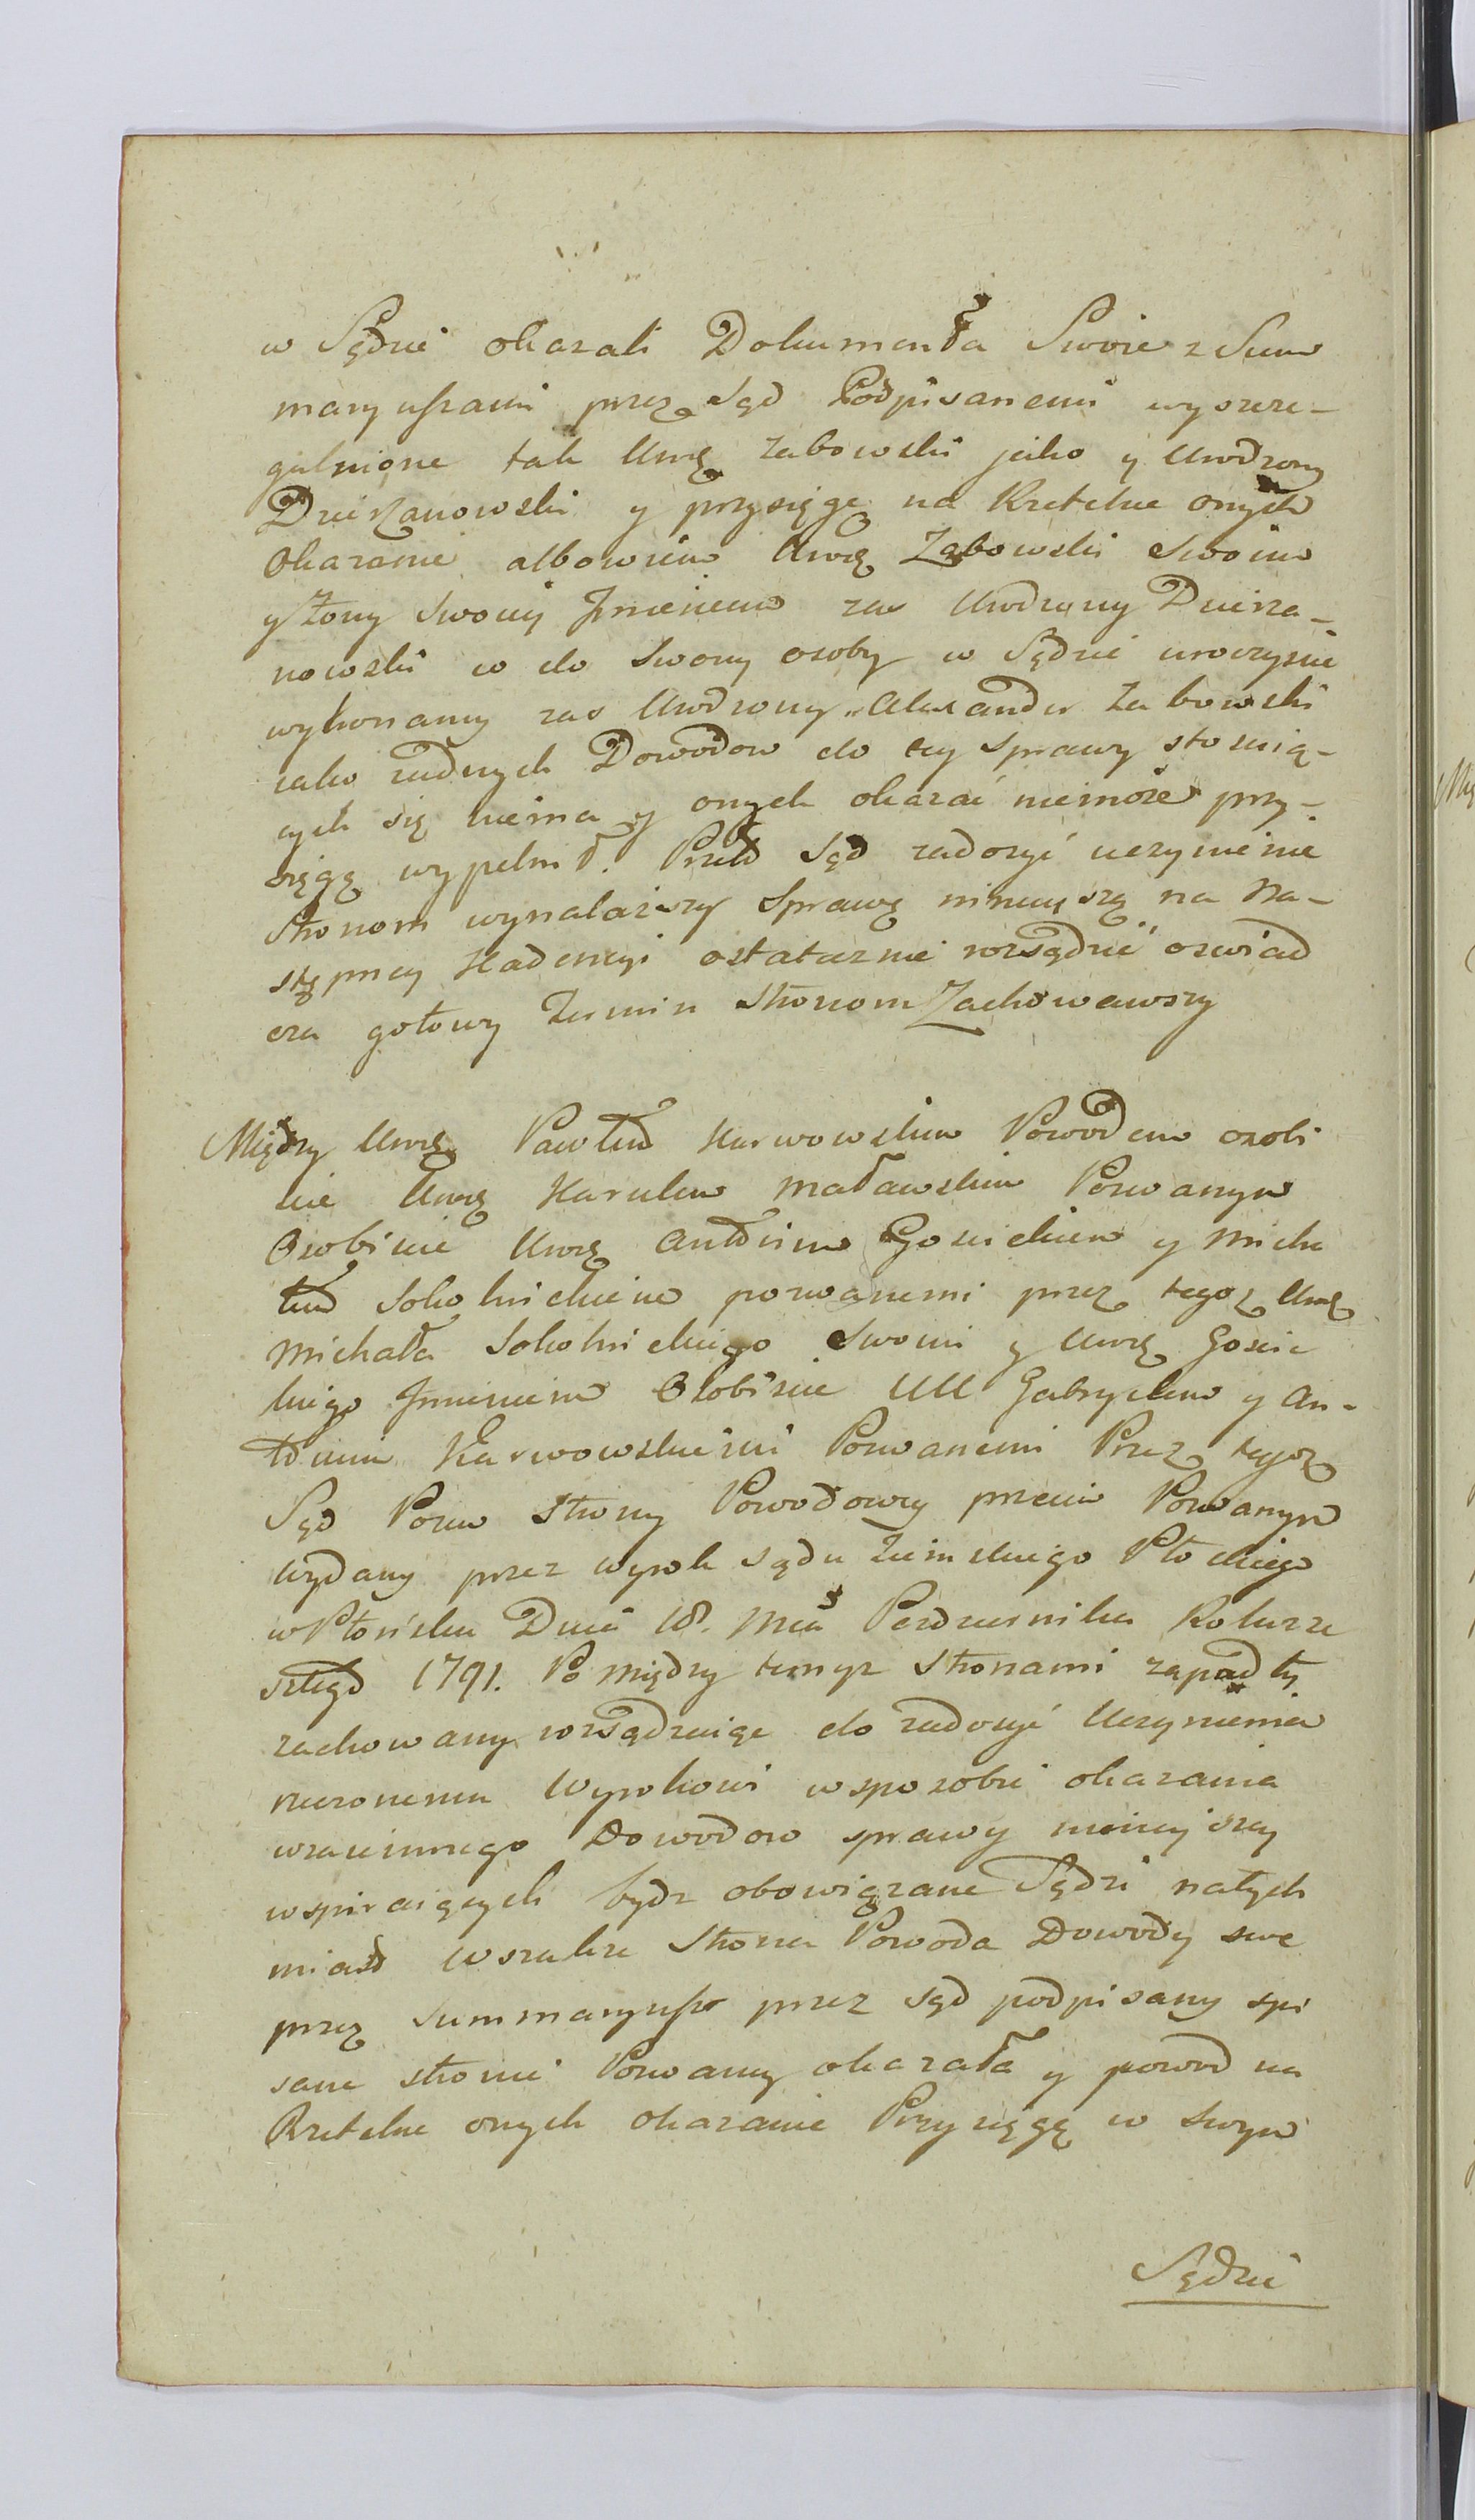 w Sądzie okazali Dokumenta Swoie z Sum
maryuszami przez Sąd Podpisanemi wyszcze-
gulnione tak Urrę Żabowski jako y Urodzony
Dzierzanowski y przysięgę na Rzetelne onych
Okazanie albowiem Urrę Żabowski Swoim
y Żony Swoiey Jmieniem zas Urodzony Dzierza-
nowski w do Swoiey osoby w Sądzie uroczyscie
wykonamy zas Urodzony Alexander Żabowski
iako żadnych Dowodow do tey Sprawy stosuią-
cych się niema y onych okazać niemoże przy-
sięgę wypełnił. Przeto Sąd zadosyć uczynienie
Stronom wynalazszy Sprawę ninieyszą na Na-
stępney Kadencyi ostatecznie rozsądzić oswiad
cza gotowy Termin Stronom Zachowawszy
Między Urrę Pawłem Karwowskim Powodem osobi
scie Urrę Karolem Maławskim Pozwanym
Osobiscie Urrę Antonim Gosickim y Micha
łem Sokolnickiem pozwanemi przez tegoz Urrę
Michała Sokolnickiego Swoim y Urrę Gosic
kiego Jmieniem Osobiscie UU Gabryelem y An-
tonim Karwowskiemi Pozwanemi Przez tegoż
Sąd Pozew Strony Powodowey przeciw Pozwanym
wydany przez wyrok Sądu Ziemskiego Płockiego
w Płońsku Dnia 18. Mca Pazdziernika Roku ze
szłego 1791. Po między temyz Stronami zapadły
zachowany rozsądzaiąc do zadosyć Uczynienia
rzeczonemu Wyrokowi w sposobie okazania
wzaiemnego Dowodow sprawy ninieyszey
wspieraiących bydz obowiązane Sądzi natych
miast wszakze Strona Powoda Dowody swe
przez Summaryusz przez Sąd podpisany spi
sane stronie Pozwaney okazała y powod na
Rzetelne onych okazanie Przysięgę w Swym
Sądzie